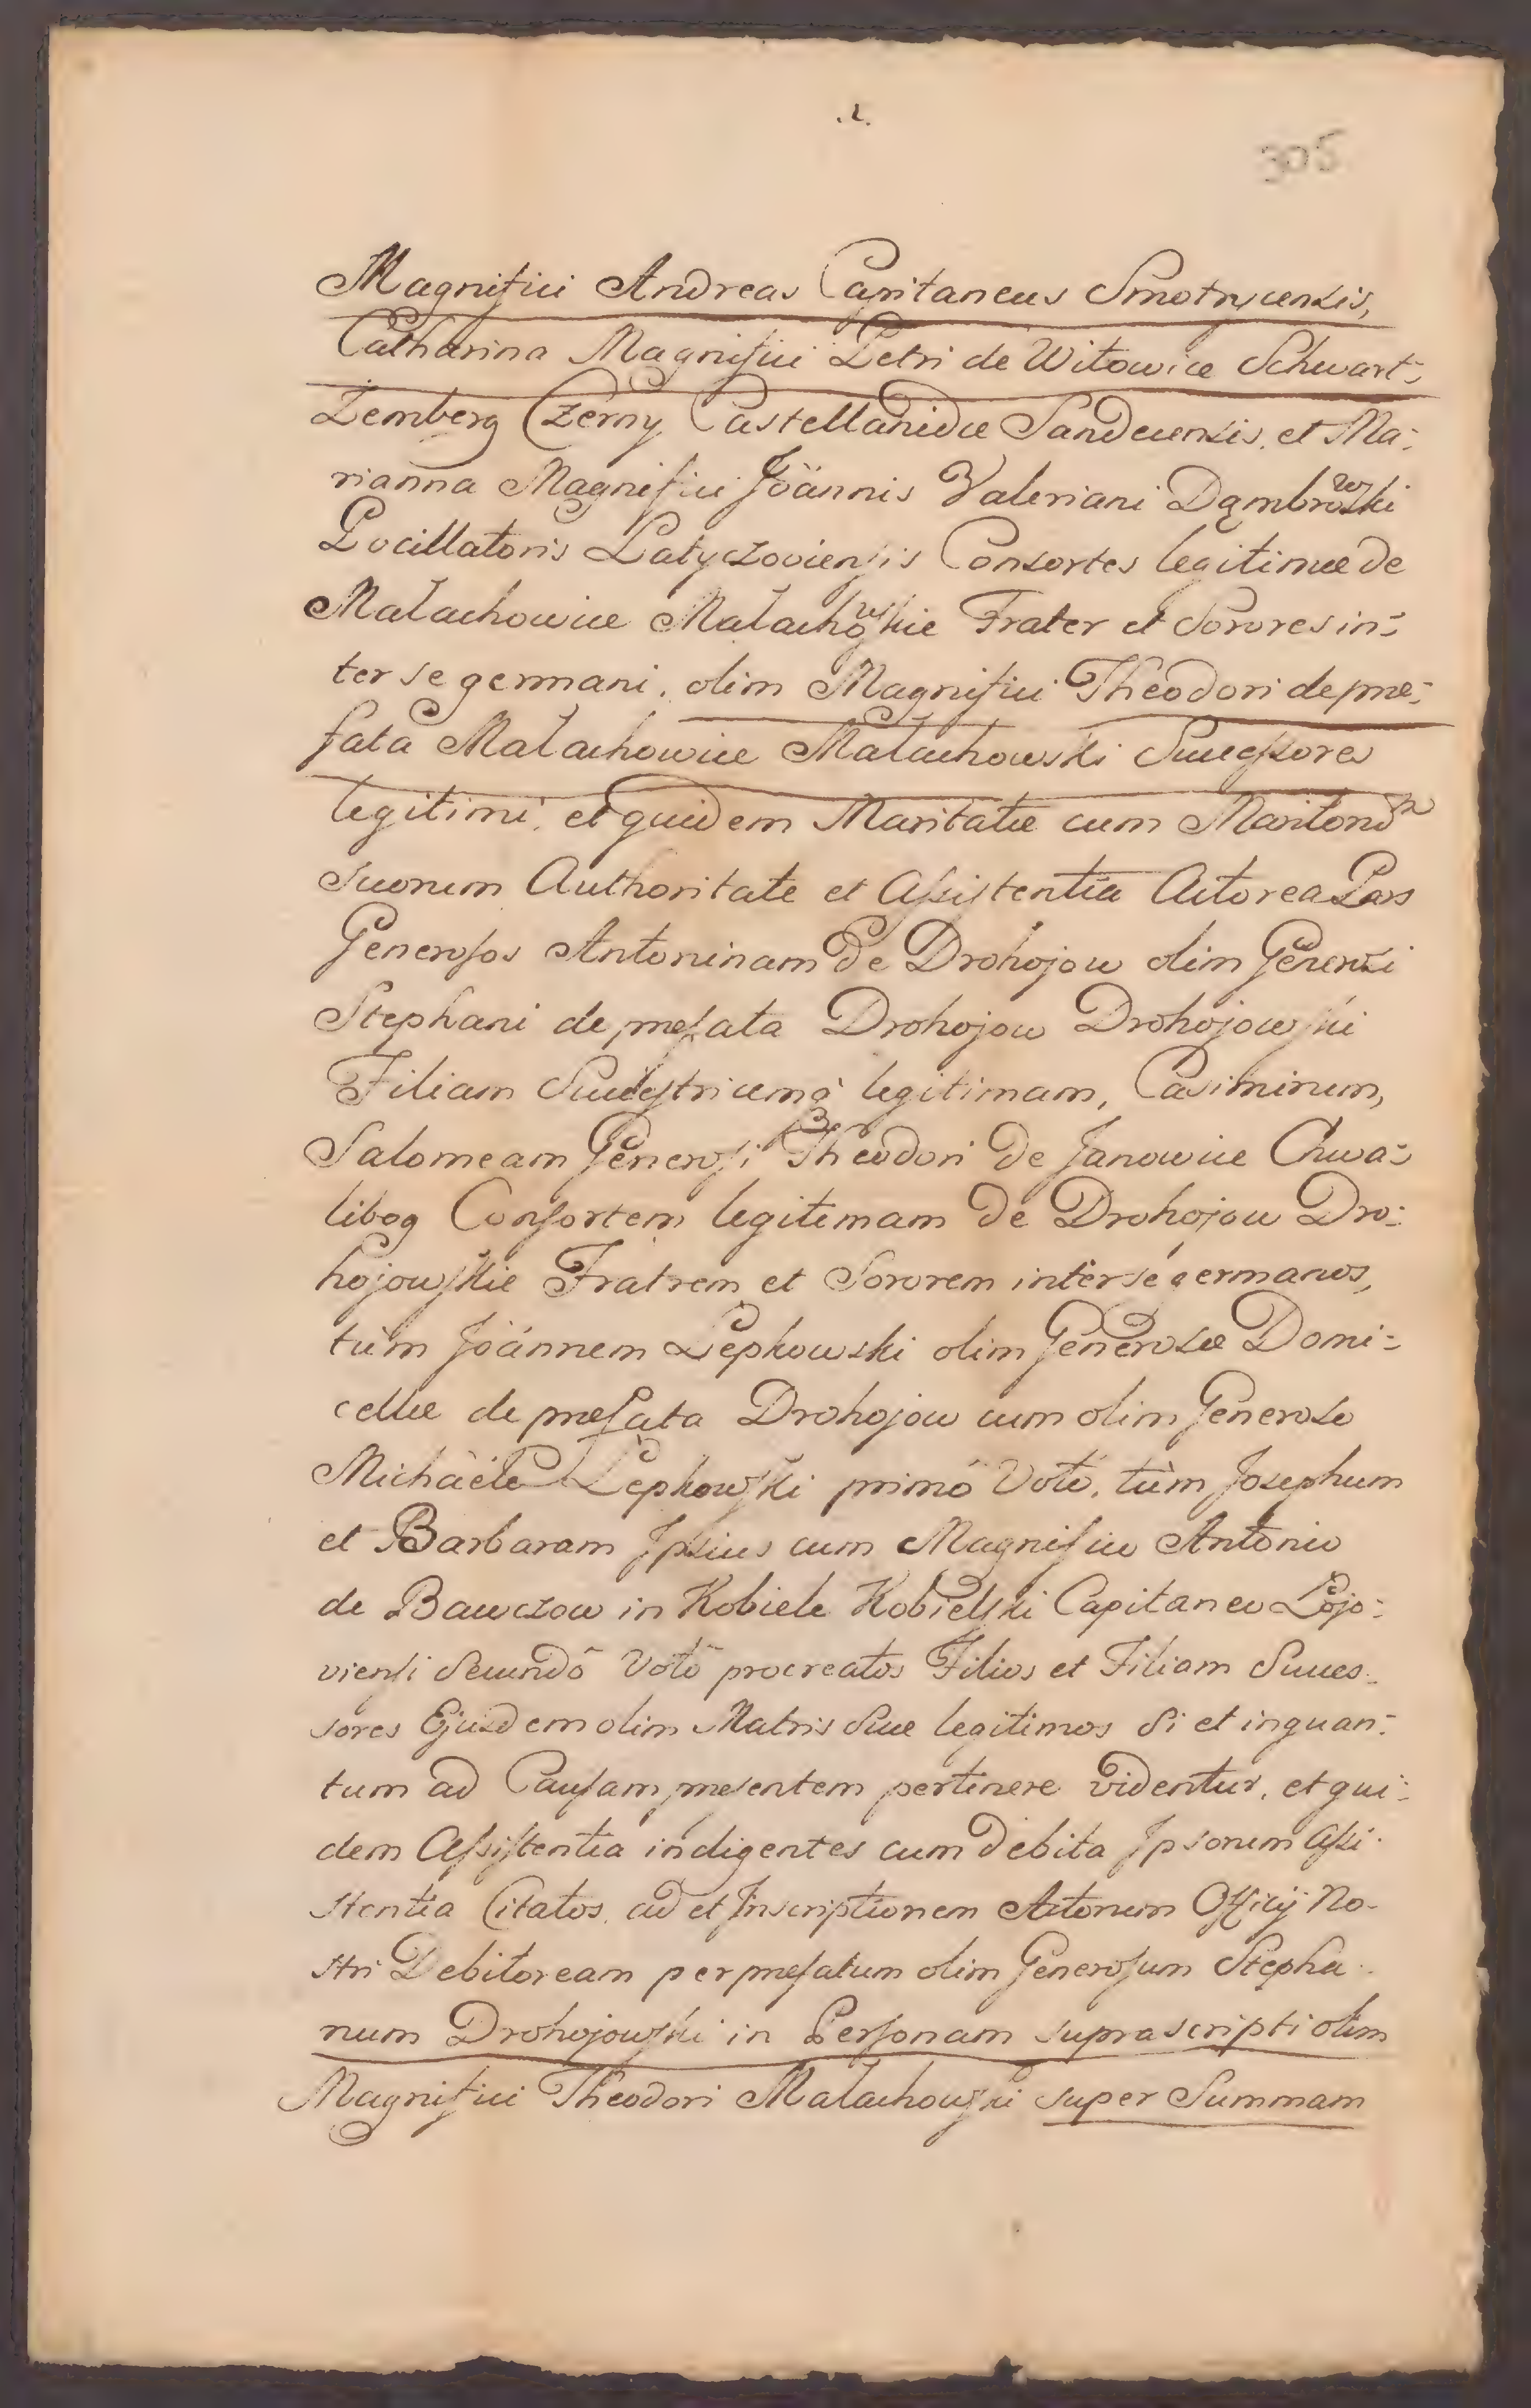 .2.
306
Magnifici Andreas Capitaneus Smotrycensis,
Catharina Magnifici Petri de Witowice Schwart-
Zemberg Czerny Castellanidæ Sandecensis, et Ma-
rianna Magnifici Joannis Valeriani Dąmbrowski
Pocillatoris Latyczoviensis Consortes legitimæ de
Małachowice Małachowskie Frater et Sorores in-
ter se germani, olim Magnifici Theodori de præ-
fata Małachowice Małachowski Successores
legitimi, et quidem Maritatæ cum Maritorum
suorum Authoritate et Assistentia Actorea Pars
Generosos Antoninam de Drohojow olim Generosi
Stephani de præfata Drohojow Drohojowski
Filiam Successtricemq legitimam, Casimirum,
Salomeam Generosi Theodori de Janowice Chwa-
libog Consortem legitimam de Drohojow Dro-
hojowskie Fratrem et Sororem inter se germanos,
tùm Joannem Łepkowski olim Generosæ Domi-
cellæ de præfata Drohojow cum olim Generoso
Michaele Łepkowski primô Votô, tùm Josephum
et Barbaram Ipsius cum Magnifico Antonio
de Bawczow in Kobiele Kobielski Capitaneo Łojo-
viensi Secundô Votô procreatos Filios et Filiam Succes-
sores Ejusdem olim Matris Suæ legitimos Si et inquan-
tum ad Causam præsentem pertinere videntur, et qui-
dem Assistentia indigentes cum debita Ipsorum Assi-
stentia Citatos, ad et Inscriptionem Actorum Officij No-
stri Debitoream per præfatum olim Generosum Stepha-
num Drohojowski in Personam suprascripti olim
Magnifici Theodori Małachowski super Summam